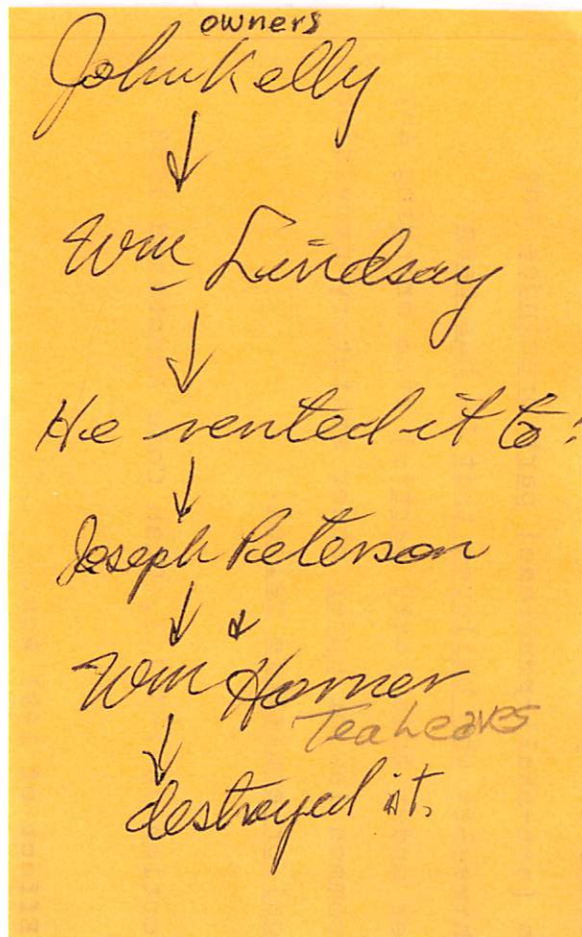 owners
John Kelly
↓
Wm Lindsay
↓
He rented it to:
↓
Joseph Peterson
↓ &
Wm Horner
Tea Leaves
↓
destroyed it.